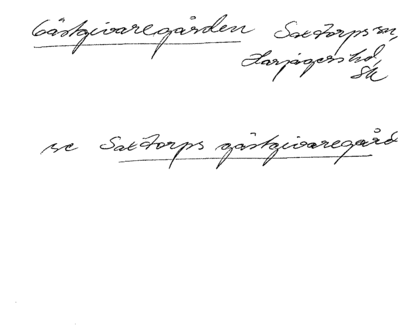 Gästgivaregården Saxtorps sn,
Harjagers hd,
Sk
se Saxtorps gästgivaregård